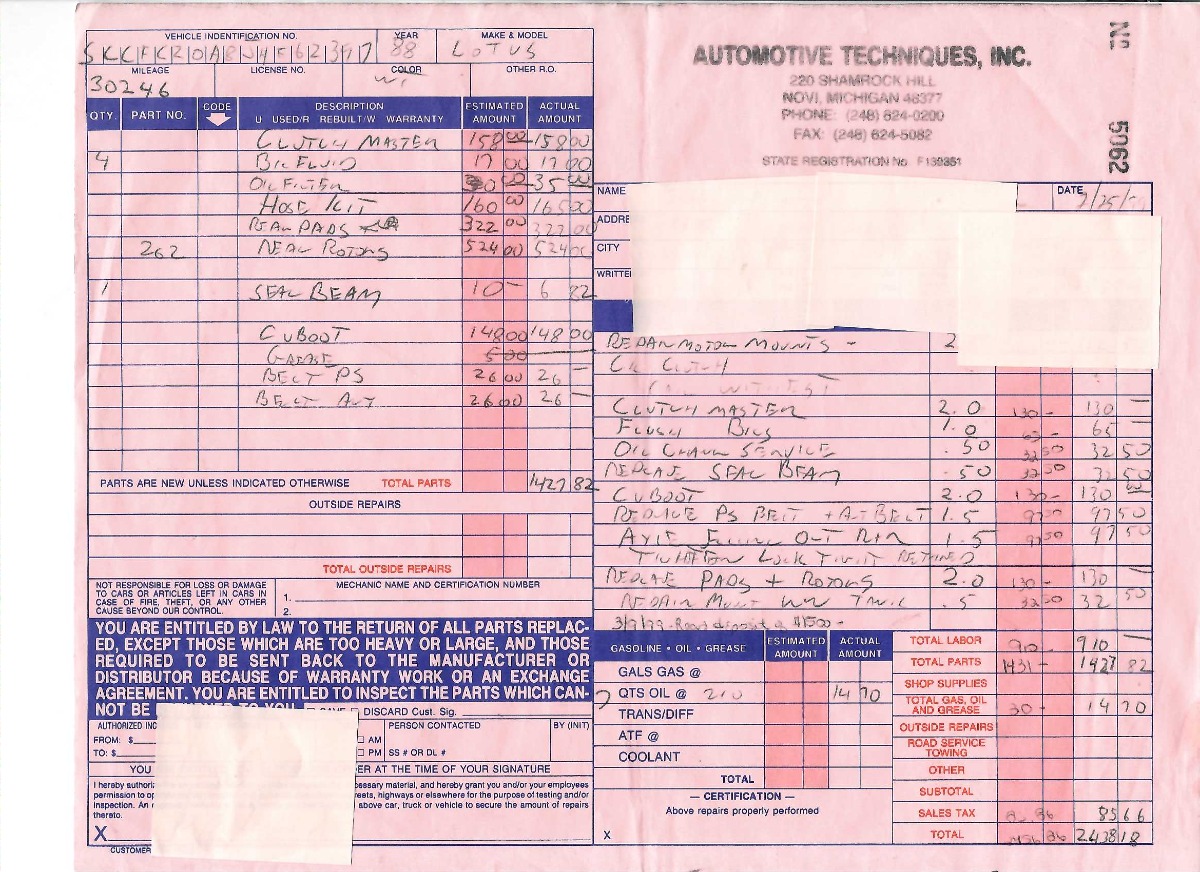 VEHICLE INDENTIFICATION NO. YEAR MAKE & MODEL
88 LOTUS
MILEAGE LICENSE NO. COLOR OTHER R.O.
30246
QTY. PART NO. CODE DESCRIPTION ESTIMATED AMOUNT ACTUAL AMOUNT
U USED/R REBUILT/W WARRANTY
CLUTCH MASTER 158 00 158 00
4 BK FLUID 17 00 17 00
OIL FILTER 35 00
HOSE KIT 160 00 165 00
REAR PADS 322 00 322 00
262 REAR ROTORS 524 00 524 00
1 SEAL BEAM 10 - 6 82
CV BOOT 148 00 148 00
GREASE 5 00
BELT PS 26 00 26 -
BELT ALT 26 00 26 -
PARTS ARE NEW UNLESS INDICATED OTHERWISE TOTAL PARTS 1427 82
OUTSIDE REPAIRS
TOTAL OUTSIDE REPAIRS
NOT RESPONSIBLE FOR LOSS OR DAMAGE
TO CARS OR ARTICLES LEFT IN CARS IN
CASE OF FIRE, THEFT, OR ANY OTHER
CAUSE BEYOND OUR CONTROL.
MECHANIC NAME AND CERTIFICATION NUMBER
1.
2.
YOU ARE ENTITLED BY LAW TO THE RETURN OF ALL PARTS REPLAC-
ED, EXCEPT THOSE WHICH ARE TOO HEAVY OR LARGE, AND THOSE
REQUIRED TO BE SENT BACK TO THE MANUFACTURER OR
DISTRIBUTOR BECAUSE OF WARRANTY WORK OR AN EXCHANGE
AGREEMENT. YOU ARE ENTITLED TO INSPECT THE PARTS WHICH CAN-
NOT BE TO YOU DISCARD Cust. Sig.
AUTHORIZED INC PERSON CONTACTED BY (INIT)
FROM: $ AM
TO: $ PM SS # OR DL #
YOU ER AT THE TIME OF YOUR SIGNATURE
I hereby authoriz cessary material, and hereby grant you and/or your employees
permission to op reets, highways or elsewhere for the purpose of testing and/or
inspection. An above car, truck or vehicle to secure the amount of repairs
thereto.
X
CUSTOMER
AUTOMOTIVE TECHNIQUES, INC.
220 SHAMROCK HILL
NOVI, MICHIGAN 48377
PHONE: (248) 624-0200
FAX: (248) 624-5082
STATE REGISTRATION No. F139351
No 5062
NAME DATE
ADDRE
CITY
WRITTE
REPAIR MOTOR MOUNTS - 2
CK CLUTCH
CLUTCH MASTER 2.0 130 - 130 -
FLUSH BKS 1.0 65 - 65 -
OIL CHANGE SERVICE .50 32 50 32 50
REPLACE SEAL BEAM .50 32 50 32 50
CV BOOT 2.0 130 - 130 00
REPLACE PS BELT + ALT BELT 1.5 97 50 97 50
AXLE OUT 1.5 97 50 97 50
TIGHTEN LOCK
REPLACE PADS + ROTORS 2.0 130 - 130 -
REPAIR .5 32 50 32 50
GASOLINE • OIL • GREASE ESTIMATED AMOUNT ACTUAL AMOUNT
GALS GAS @
7 QTS OIL @ 210 14 70
TRANS/DIFF
ATF @
COOLANT
TOTAL
— CERTIFICATION —
Above repairs properly performed
X
TOTAL LABOR 910 - 910 -
TOTAL PARTS 1431 - 1427 82
SHOP SUPPLIES
TOTAL GAS, OIL AND GREASE 30 - 14 70
OUTSIDE REPAIRS
ROAD SERVICE TOWING
OTHER
SUBTOTAL
SALES TAX 85 66
TOTAL 2438 18